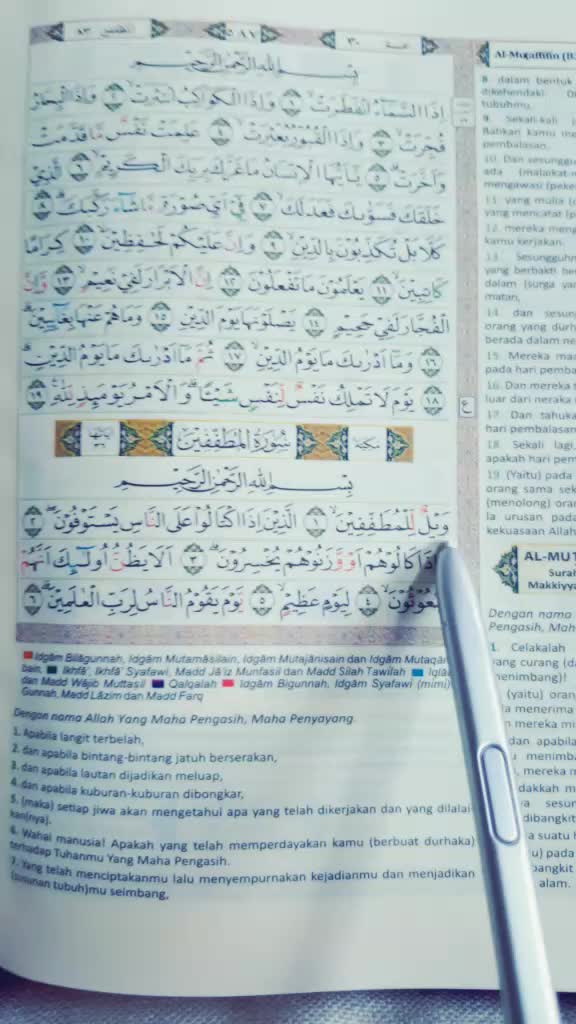 الانفطار ٨٢
٥٨٦
عمّ ٣٠
بِسْمِ اللّٰهِ الرَّحْمٰنِ الرَّحِيْمِ
اِذَا السَّمَاۤءُ انْفَطَرَتْۙ ١ وَاِذَا الْكَوَاكِبُ انْتَثَرَتْۙ ٢ وَاِذَا الْبِحَارُ
فُجِّرَتْۙ ٣ وَاِذَا الْقُبُوْرُ بُعْثِرَتْۙ ٤ عَلِمَتْ نَفْسٌ مَّا قَدَّمَتْ
وَاَخَّرَتْۗ ٥ يٰٓاَيُّهَا الْاِنْسَانُ مَا غَرَّكَ بِرَبِّكَ الْكَرِيْمِۙ ٦ الَّذِيْ
خَلَقَكَ فَسَوّٰىكَ فَعَدَلَكَۙ ٧ فِيْٓ اَيِّ صُوْرَةٍ مَّا شَاۤءَ رَكَّبَكَۗ ٨
كَلَّا بَلْ تُكَذِّبُوْنَ بِالدِّيْنِۙ ٩ وَاِنَّ عَلَيْكُمْ لَحٰفِظِيْنَۙ ١٠ كِرَامًا
كَاتِبِيْنَۙ ١١ يَعْلَمُوْنَ مَا تَفْعَلُوْنَ ١٢ اِنَّ الْاَبْرَارَ لَفِيْ نَعِيْمٍۙ ١٣ وَّاِنَّ
الْفُجَّارَ لَفِيْ جَحِيْمٍ ١٤ يَّصْلَوْنَهَا يَوْمَ الدِّيْنِ ١٥ وَمَا هُمْ عَنْهَا بِغَاۤىِٕبِيْنَۗ
١٦ وَمَآ اَدْرٰىكَ مَا يَوْمُ الدِّيْنِۙ ١٧ ثُمَّ مَآ اَدْرٰىكَ مَا يَوْمُ الدِّيْنِۗ
١٨ يَوْمَ لَا تَمْلِكُ نَفْسٌ لِّنَفْسٍ شَيْـًٔاۗ وَالْاَمْرُ يَوْمَىِٕذٍ لِّلّٰهِ ١٩
مكية سُوْرَةُ الْمُطَفِّفِيْنَ اٰياتها ٣٦
بِسْمِ اللّٰهِ الرَّحْمٰنِ الرَّحِيْمِ
وَيْلٌ لِّلْمُطَفِّفِيْنَۙ ١ الَّذِيْنَ اِذَا اكْتَالُوْا عَلَى النَّاسِ يَسْتَوْفُوْنَۖ ٢
كَالُوْهُمْ اَوْ وَّزَنُوْهُمْ يُخْسِرُوْنَۗ ٣ اَلَا يَظُنُّ اُولٰۤىِٕكَ اَنَّهُمْ
مَّبْعُوْثُوْنَۙ ٤ لِيَوْمٍ عَظِيْمٍۙ ٥ يَّوْمَ يَقُوْمُ النَّاسُ لِرَبِّ الْعٰلَمِيْنَۗ ٦
Idgām Bilāgunnah, Idgām Mutamāṡilain, Idgām Mutajānisain dan Idgām Mutaqār
bain, Ikhfā', Ikhfā' Syafawi, Madd Jā'iz Munfasil dan Madd Silah Tawilah Iqlā
dan Madd Wājib Muttasil Qalqalah Idgām Bigunnah, Idgām Syafawi (mimi)
Gunnah, Madd Lāzim dan Madd Farq
Dengan nama Allah Yang Maha Pengasih, Maha Penyayang
1. Apabila langit terbelah,
2. dan apabila bintang-bintang jatuh berserakan,
3. dan apabila lautan dijadikan meluap,
4. dan apabila kuburan-kuburan dibongkar,
5. (maka) setiap jiwa akan mengetahui apa yang telah dikerjakan dan yang dilalai-
kan(nya).
6. Wahai manusia! Apakah yang telah memperdayakan kamu (berbuat durhaka)
terhadap Tuhanmu Yang Maha Pengasih.
7. Yang telah menciptakanmu lalu menyempurnakan kejadianmu dan menjadikan
(susunan tubuh)mu seimbang,
Al-Muṭaffifīn
8. dalam bentuk
dikehendaki
tubuhmu.
9. Sekali-kali
Bahkan kamu me
pembalasan.
10. Dan sesunggu
ada (malaikat-m
mengawasi (peker
11. yang mulia
yang mencatat
12. mereka meng
kamu kerjakan.
13. Sesungguhn
yang berbakti
dalam (surga ya
matan,
14. dan sesung
orang yang durh
berada dalam ne
15. Mereka ma
pada hari pemba
16. Dan mereka
luar dari neraka
17. Dan tahuka
hari pembalasan
18. Sekali lagi,
apakah hari pem
19. (Yaitu) pada
orang sama sek
(menolong) oran
la urusan pada
kekuasaan Allah
AL-MUT
Surah
Makkiyya
Dengan nama
Pengasih, Mah
1. Celakalah
yang curang (da
menimbang)!
(yaitu) oran
menerima
mereka mi
dan apabila
menimba
mereka m
sesun
dibangkit
suatu
pada
bangkit
alam.